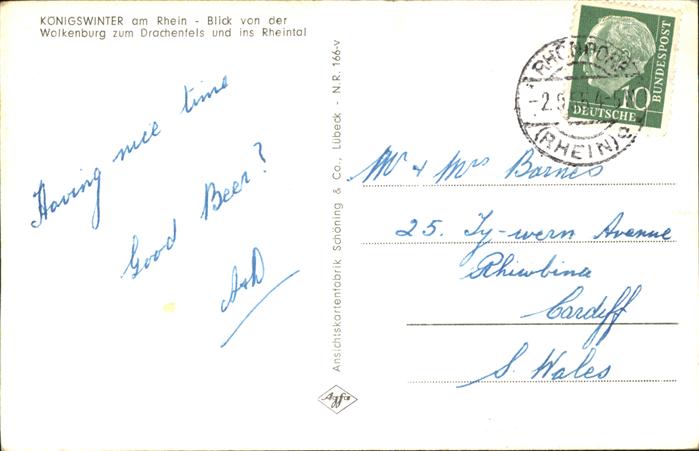 KÖNIGSWINTER am Rhein - Blick von der
Wolkenburg zum Drachenfels und ins Rheintal
Having nice time
Good Beer?
Ansichtskartenfabrik Schöning & Co., Lübeck - N.R. 166-v
Agfa
10
DEUTSCHE
BUNDESPOST
(RHEIN)
Mr & Mrs Barnes
25. Ty-wern Avenue
Rhiwbina
Cardiff
S. Wales